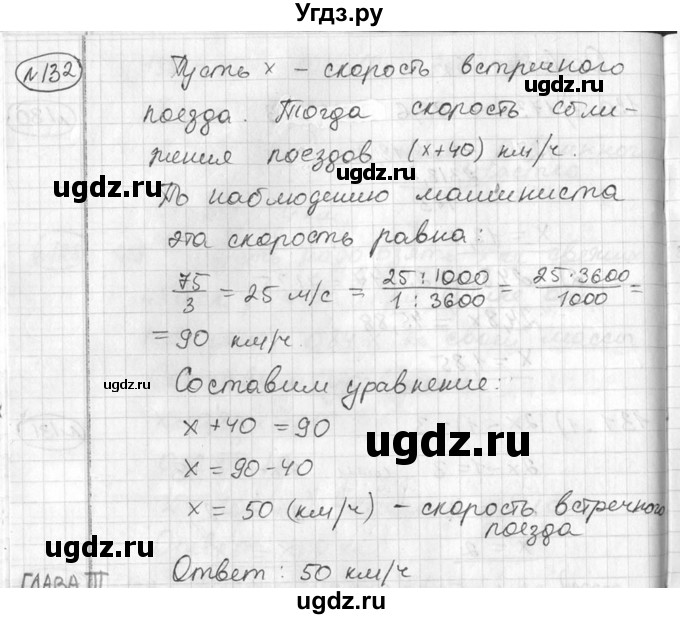 Угдз.ру
№132
Пусть x – скорость встречного
поезда. Тогда скорость сбли-
жения поездов (x+40) км/ч.
По наблюдению машиниста
эта скорость равна:
75/3 = 25 м/с = 25:1000/1:3600 = 25·3600/1000 =
= 90 км/ч.
Составим уравнение:
x+40 = 90
x = 90-40
x = 50 (км/ч) – скорость встречного
поезда
Ответ: 50 км/ч
ГЛАВА III
ugdz.ru
ugdz.ru
ugdz.ru
ugdz.ru
ugdz.ru
ugdz.ru
ugdz.ru
ugdz.ru
ugdz.ru